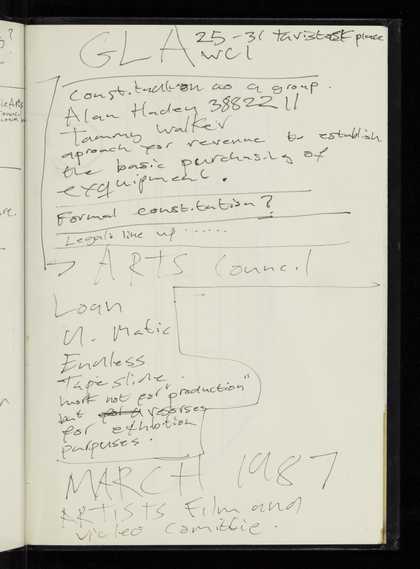 GLA 25-31 Tavistock place
WC1
Constitution as a group.
Alan Hadey 3882211
Tammy Walker
aproach for revenue to establish
the basic purchasing of
exquipment.
Formal constitution?
Legals line up ......
ARTS Council
Loan
U. Matic
Endless
Tape slide.
work not for "production"
but resorses
for exhbition
purpuses.
MARCH 1987
ARTISTS Film and
video comittie.